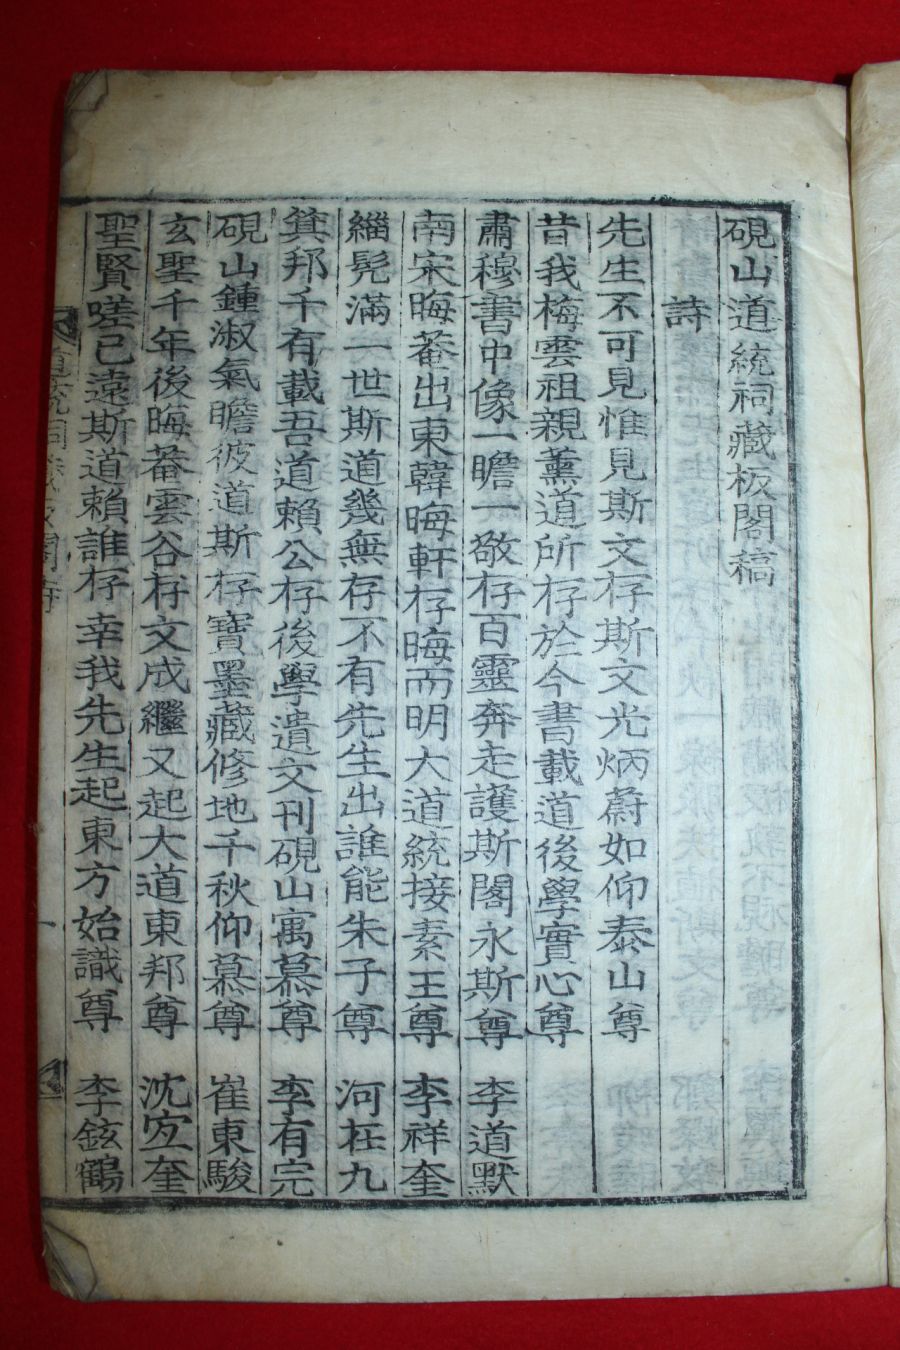 硯山道統祠藏板閣稿
詩
先生不可見惟見斯文存斯文光炳蔚如仰泰山尊
昔我梅雲祖親薰道所存於今書載道後學實心尊
肅穆書中像一瞻一敬存百靈奔走護斯閣永斯尊 李道默
南宋晦菴出東韓晦軒存晦而明大道統接素王尊 李祥奎
緇髡滿一世斯道幾無存不有先生出誰能朱子尊 河在九
箕邦千有載吾道賴公存後學遺文刊硯山寓慕尊 李有完
硯山鍾淑氣瞻彼道斯存寶墨藏修地千秋仰慕尊 崔東駿
玄聖千年後晦菴雲谷存文成繼又起大道東邦尊 沈宜奎
聖賢嗟已遠斯道賴誰存幸我先生起東方始識尊 李鉉鶴
一